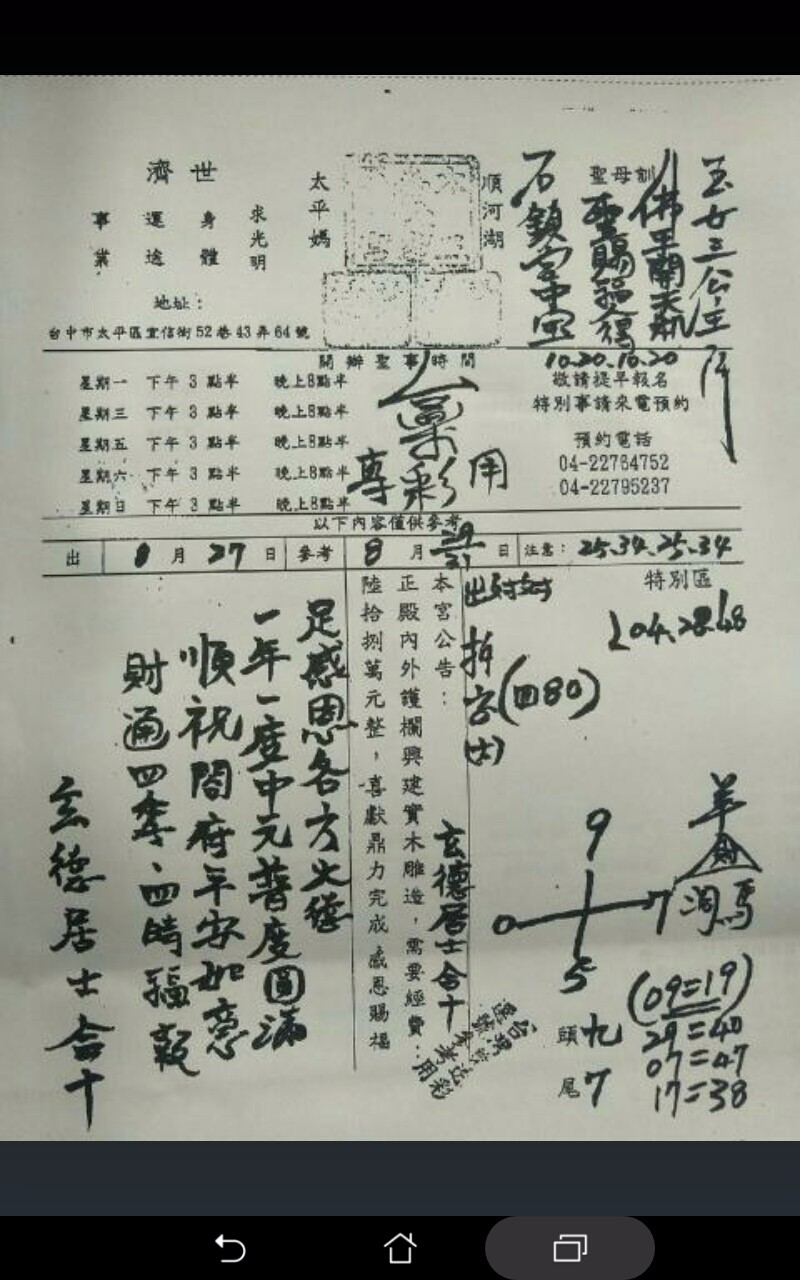 玉女三公主
聖母訓
佛至關天机
聖賜福
石鎮宮中
10.20.10.20
順河湖
太平媽
濟世
求光明
身體
運途
事業
地址：
台中市太平區宜信街52巷43弄64號
開辦聖事時間
星期一 下午3點半 晚上8點半
星期三 下午3點半 晚上8點半
星期五 下午3點半 晚上8點半
星期六 下午3點半 晚上8點半
星期日 下午3點半 晚上8點半
敬請提早報名
特別事請來電預約
預約電話
04-22764752
04-22795237
專彩用
以下內容僅供參考
出 8月27日 參考 8月29 31日 注意：25.34.25.34
特別區
204.28.48
出對對
拆字(四80)
本宮公告：
正殿內外護欄興建實木雕造，需要經費：
陸拾捌萬元整，喜獻鼎力完成 感恩賜福
玄德居士合十
足感恩各方大德
一年一度中元普度圓滿
順祝閤府平安如意
財通四季、四時福報
玄德居士合十
9
0 7
5
羊
財
洞馬
(09=19)
29=40
07=47
17=38
頭九
尾7
台灣運彩
選號參考用